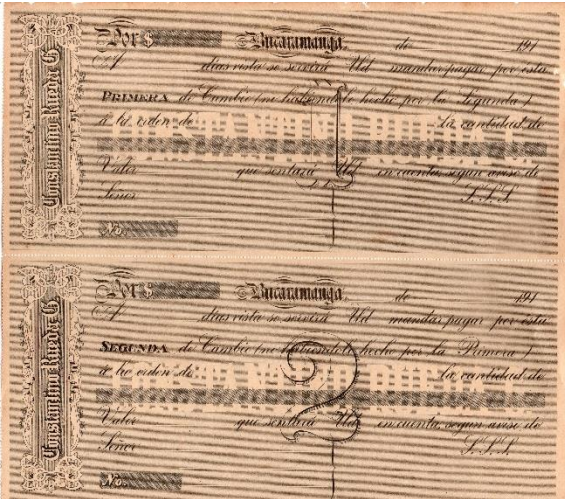 Constantino Rueda G.
Por $ Bucaramanga, de 191
A días vista se servirá Ud mandar pagar por esta
PRIMERA de Cambio (no habiendolo hecho por la Segunda)
á la orden de la cantidad de
CONSTANTINO RUEDA G.
Valor que sentará Ud en cuenta, segun aviso de
Señor S.S.S.
No.
1
Constantino Rueda G.
Por $ Bucaramanga, de 191
A días vista se servirá Ud mandar pagar por esta
SEGUNDA de Cambio (no habiendolo hecho por la Primera)
á la orden de la cantidad de
CONSTANTINO RUEDA G.
Valor que sentará Ud en cuenta, segun aviso de
Señor S.S.S.
No.
2